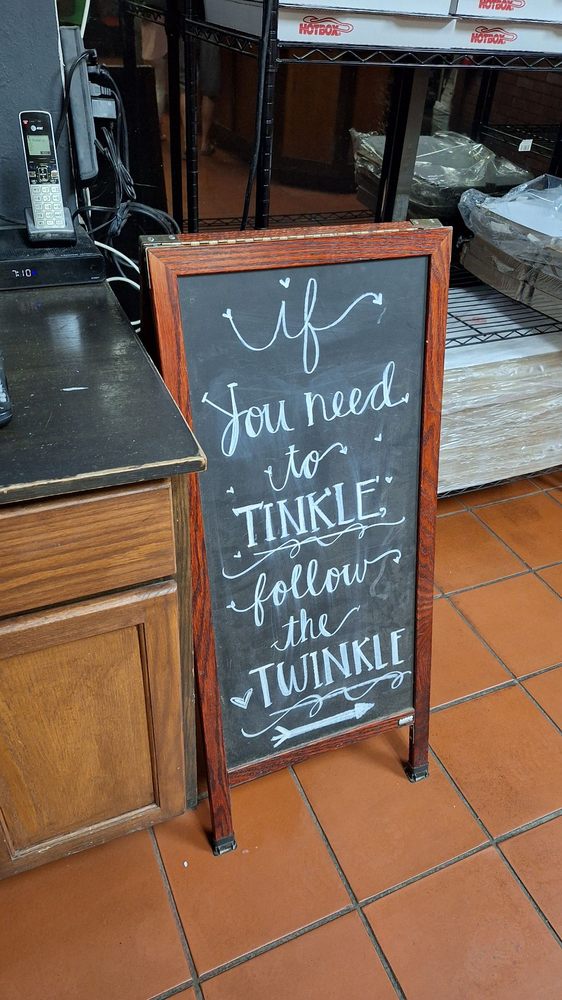 HOTBOX
HOTBOX
HOTBOX
AT&T
7:10
if
You need
to
TINKLE,
follow
the
TWINKLE